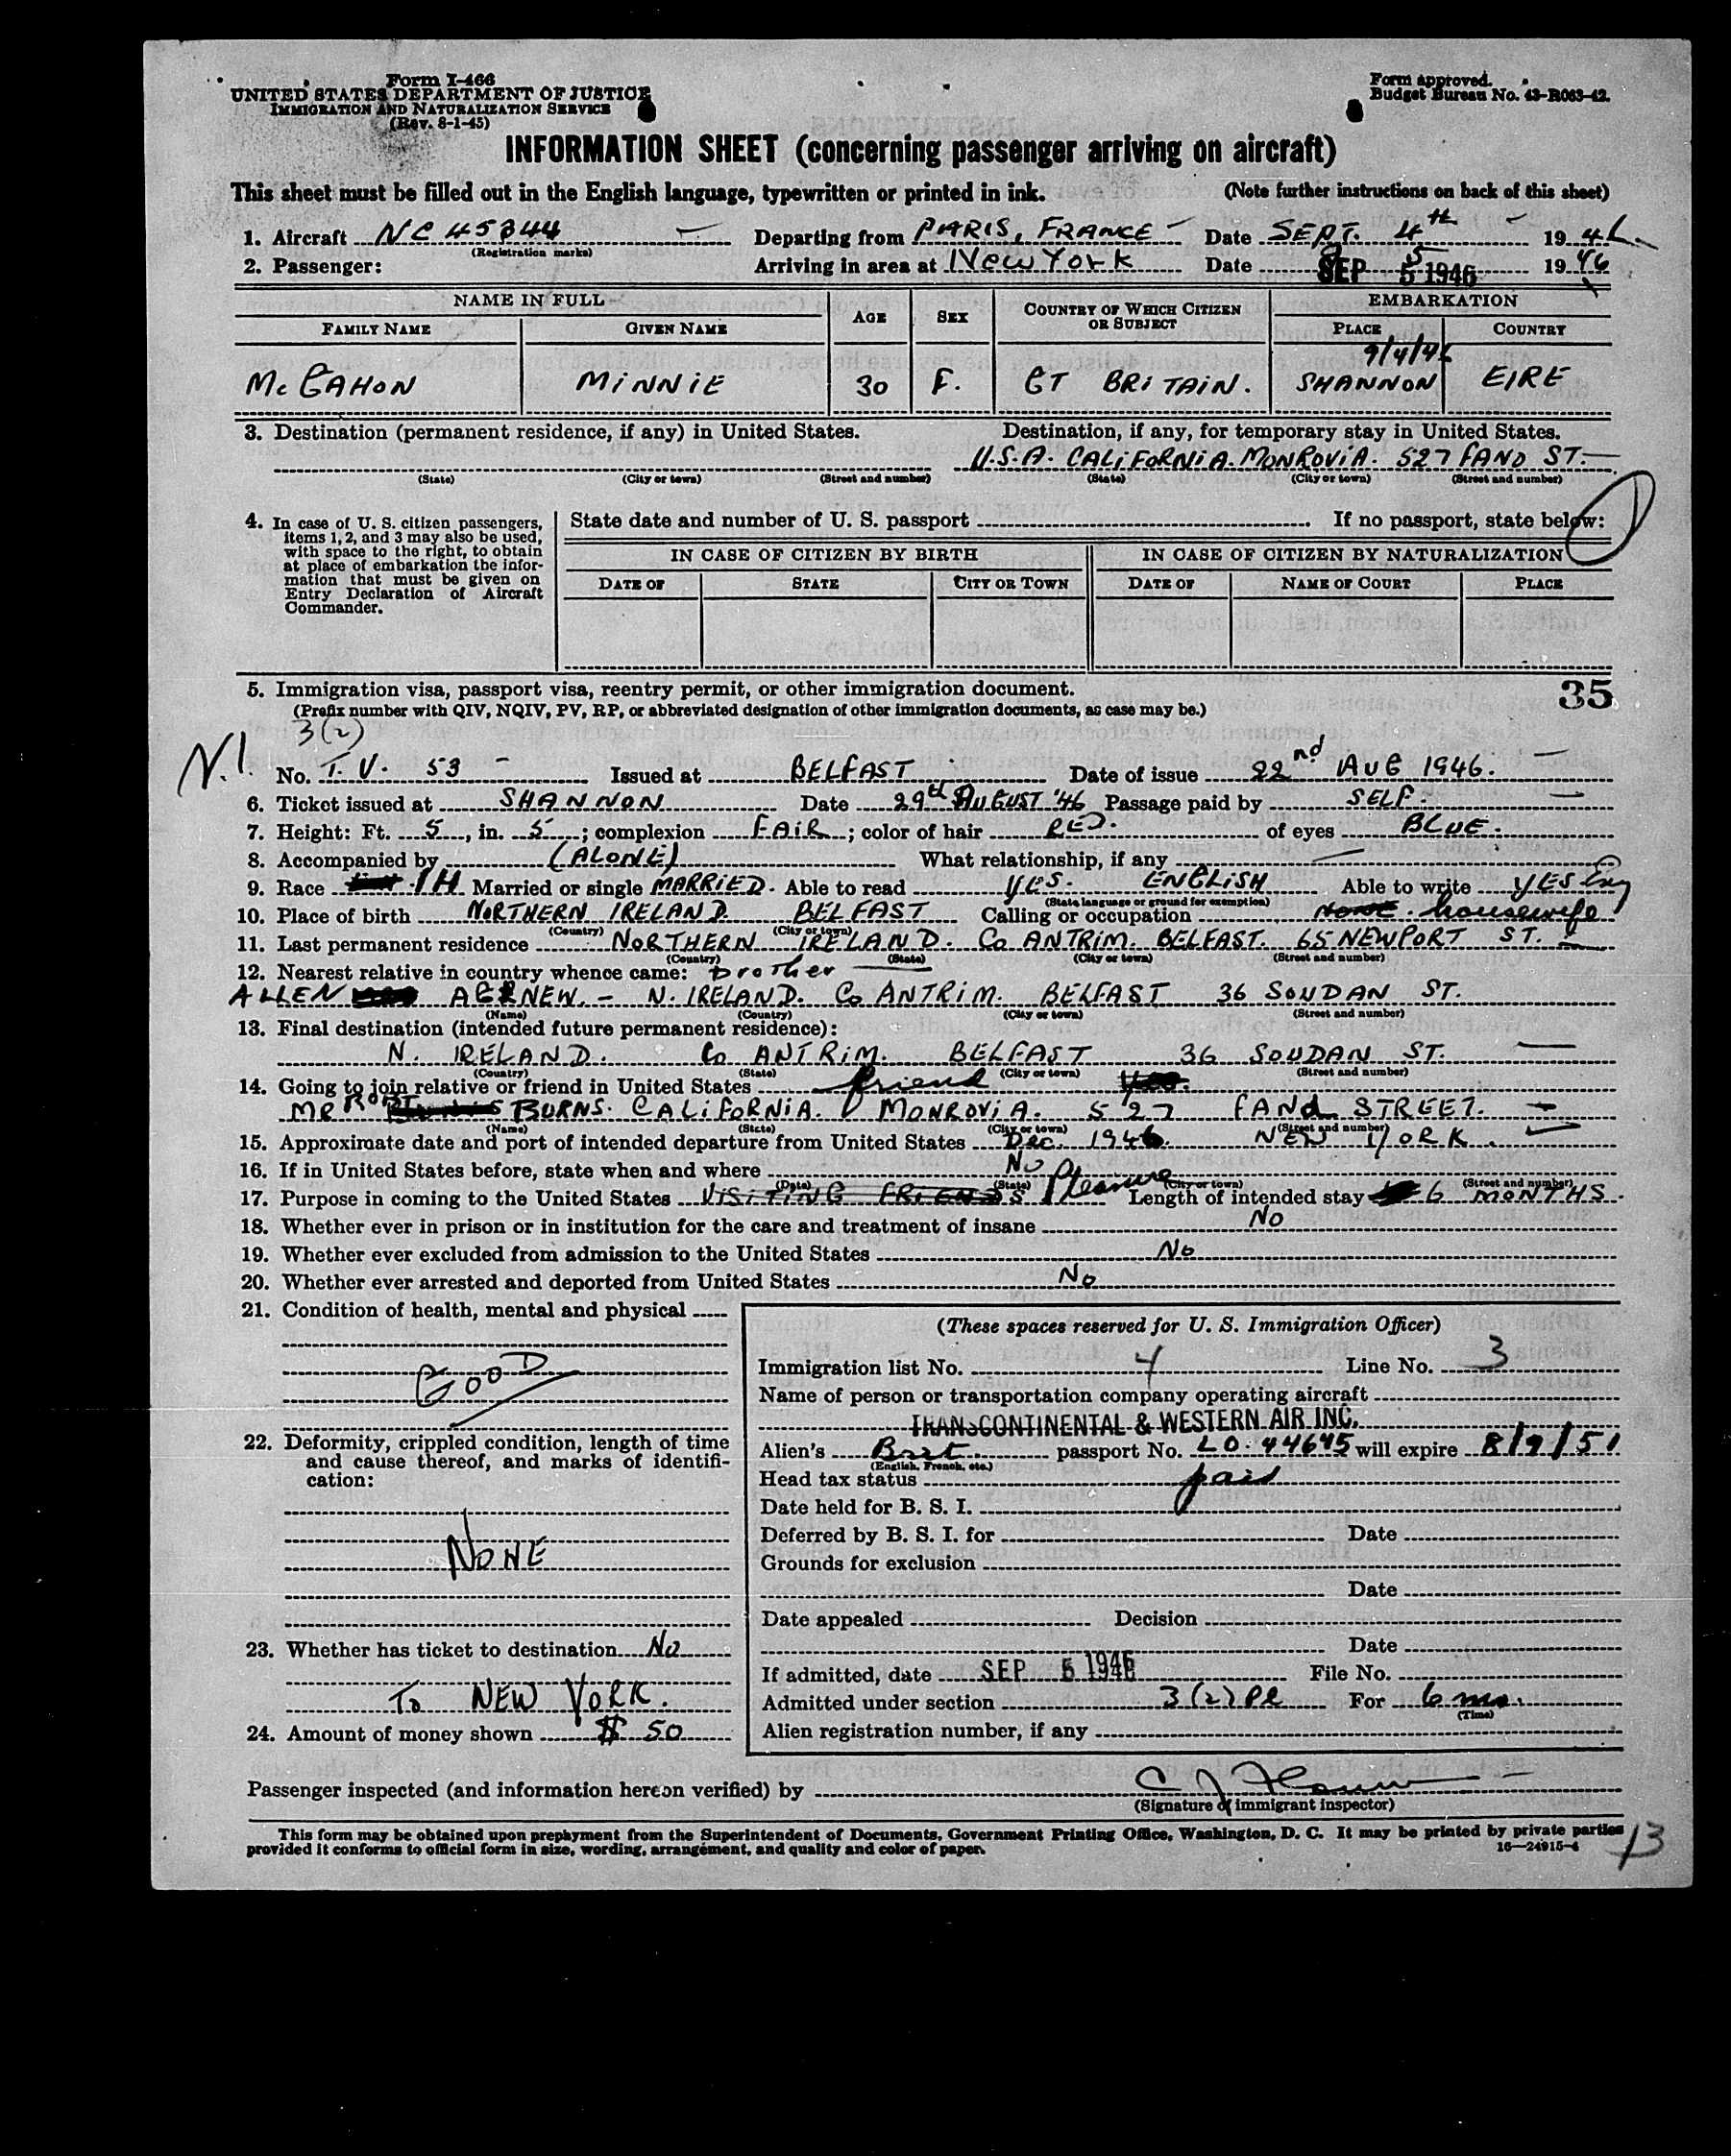 Form I-466
UNITED STATES DEPARTMENT OF JUSTICE
IMMIGRATION AND NATURALIZATION SERVICE
(Rev. 8-1-45)
Form approved.
Budget Bureau No. 43-R063-42.
INFORMATION SHEET (concerning passenger arriving on aircraft)
This sheet must be filled out in the English language, typewritten or printed in ink. (Note further instructions on back of this sheet)
1. Aircraft NC 45344 Departing from PARIS, FRANCE - Date SEPT. 4th - 1946
(Registration marks)
2. Passenger: Arriving in area at New York Date SEP 5 1946 1946
NAME IN FULL AGE SEX COUNTRY OF WHICH CITIZEN OR SUBJECT EMBARKATION
FAMILY NAME GIVEN NAME PLACE COUNTRY
9/4/46
McGAHON MINNIE 30 F. GT BRITAIN. SHANNON EIRE
3. Destination (permanent residence, if any) in United States. Destination, if any, for temporary stay in United States.
U.S.A. CALIFORNIA. MONROVIA. 527 FAND ST.
(State) (City or town) (Street and number) (State) (City or town) (Street and number)
4. In case of U. S. citizen passengers, items 1, 2, and 3 may also be used, with space to the right, to obtain at place of embarkation the information that must be given on Entry Declaration of Aircraft Commander.
State date and number of U. S. passport If no passport, state below:
IN CASE OF CITIZEN BY BIRTH IN CASE OF CITIZEN BY NATURALIZATION
DATE OF STATE CITY OR TOWN DATE OF NAME OF COURT PLACE
5. Immigration visa, passport visa, reentry permit, or other immigration document. 35
(Prefix number with QIV, NQIV, PV, RP, or abbreviated designation of other immigration documents, as case may be.)
3(2)
N.I. No. T.V. 53 - Issued at BELFAST Date of issue 22nd AUG 1946.
6. Ticket issued at SHANNON Date 29th AUGUST '46 Passage paid by SELF.
7. Height: Ft. 5, in. 5; complexion FAIR; color of hair RED. of eyes BLUE.
8. Accompanied by (ALONE) What relationship, if any
9. Race IH Married or single MARRIED. Able to read YES. ENGLISH Able to write YES Eng
(State language or ground for exemption)
10. Place of birth NORTHERN IRELAND. BELFAST Calling or occupation housewife
(Country) (City or town)
11. Last permanent residence NORTHERN IRELAND. Co ANTRIM. BELFAST. 65 NEWPORT ST.
(Country) (State) (City or town) (Street and number)
12. Nearest relative in country whence came: brother
ALLEN AGNEW. - N. IRELAND. Co ANTRIM. BELFAST 36 SOUDAN ST.
(Name) (Country) (City or town) (Street and number)
13. Final destination (intended future permanent residence):
N. IRELAND. Co ANTRIM. BELFAST 36 SOUDAN ST.
(Country) (State) (City or town) (Street and number)
14. Going to join relative or friend in United States friend
MR ROBT BURNS. CALIFORNIA. MONROVIA. 527 FAND STREET.
(Name) (State) (City or town) (Street and number)
15. Approximate date and port of intended departure from United States Dec. 1946. NEW YORK.
16. If in United States before, state when and where No
(Date) (State) (City or town) (Street and number)
17. Purpose in coming to the United States VISITING FRIENDS Pleasure Length of intended stay 6 MONTHS.
18. Whether ever in prison or in institution for the care and treatment of insane No
19. Whether ever excluded from admission to the United States No
20. Whether ever arrested and deported from United States No
21. Condition of health, mental and physical
GOOD
22. Deformity, crippled condition, length of time and cause thereof, and marks of identification:
NONE
23. Whether has ticket to destination No
TO NEW YORK.
24. Amount of money shown $ 50
(These spaces reserved for U. S. Immigration Officer)
Immigration list No. 4 Line No. 3
Name of person or transportation company operating aircraft
TRANSCONTINENTAL & WESTERN AIR INC.
Alien's Brit. passport No. LO. 44645 will expire 8/9/51
(English, French, etc.)
Head tax status paid
Date held for B. S. I.
Deferred by B. S. I. for Date
Grounds for exclusion
Date
Date appealed Decision
Date
If admitted, date SEP 5 1946 File No.
Admitted under section 3(2) Pl For 6 mos.
(Time)
Alien registration number, if any
Passenger inspected (and information hereon verified) by
(Signature of immigrant inspector)
This form may be obtained upon prepayment from the Superintendent of Documents, Government Printing Office, Washington, D. C. It may be printed by private parties
provided it conforms to official form in size, wording, arrangement, and quality and color of paper.
16—24915-4
13